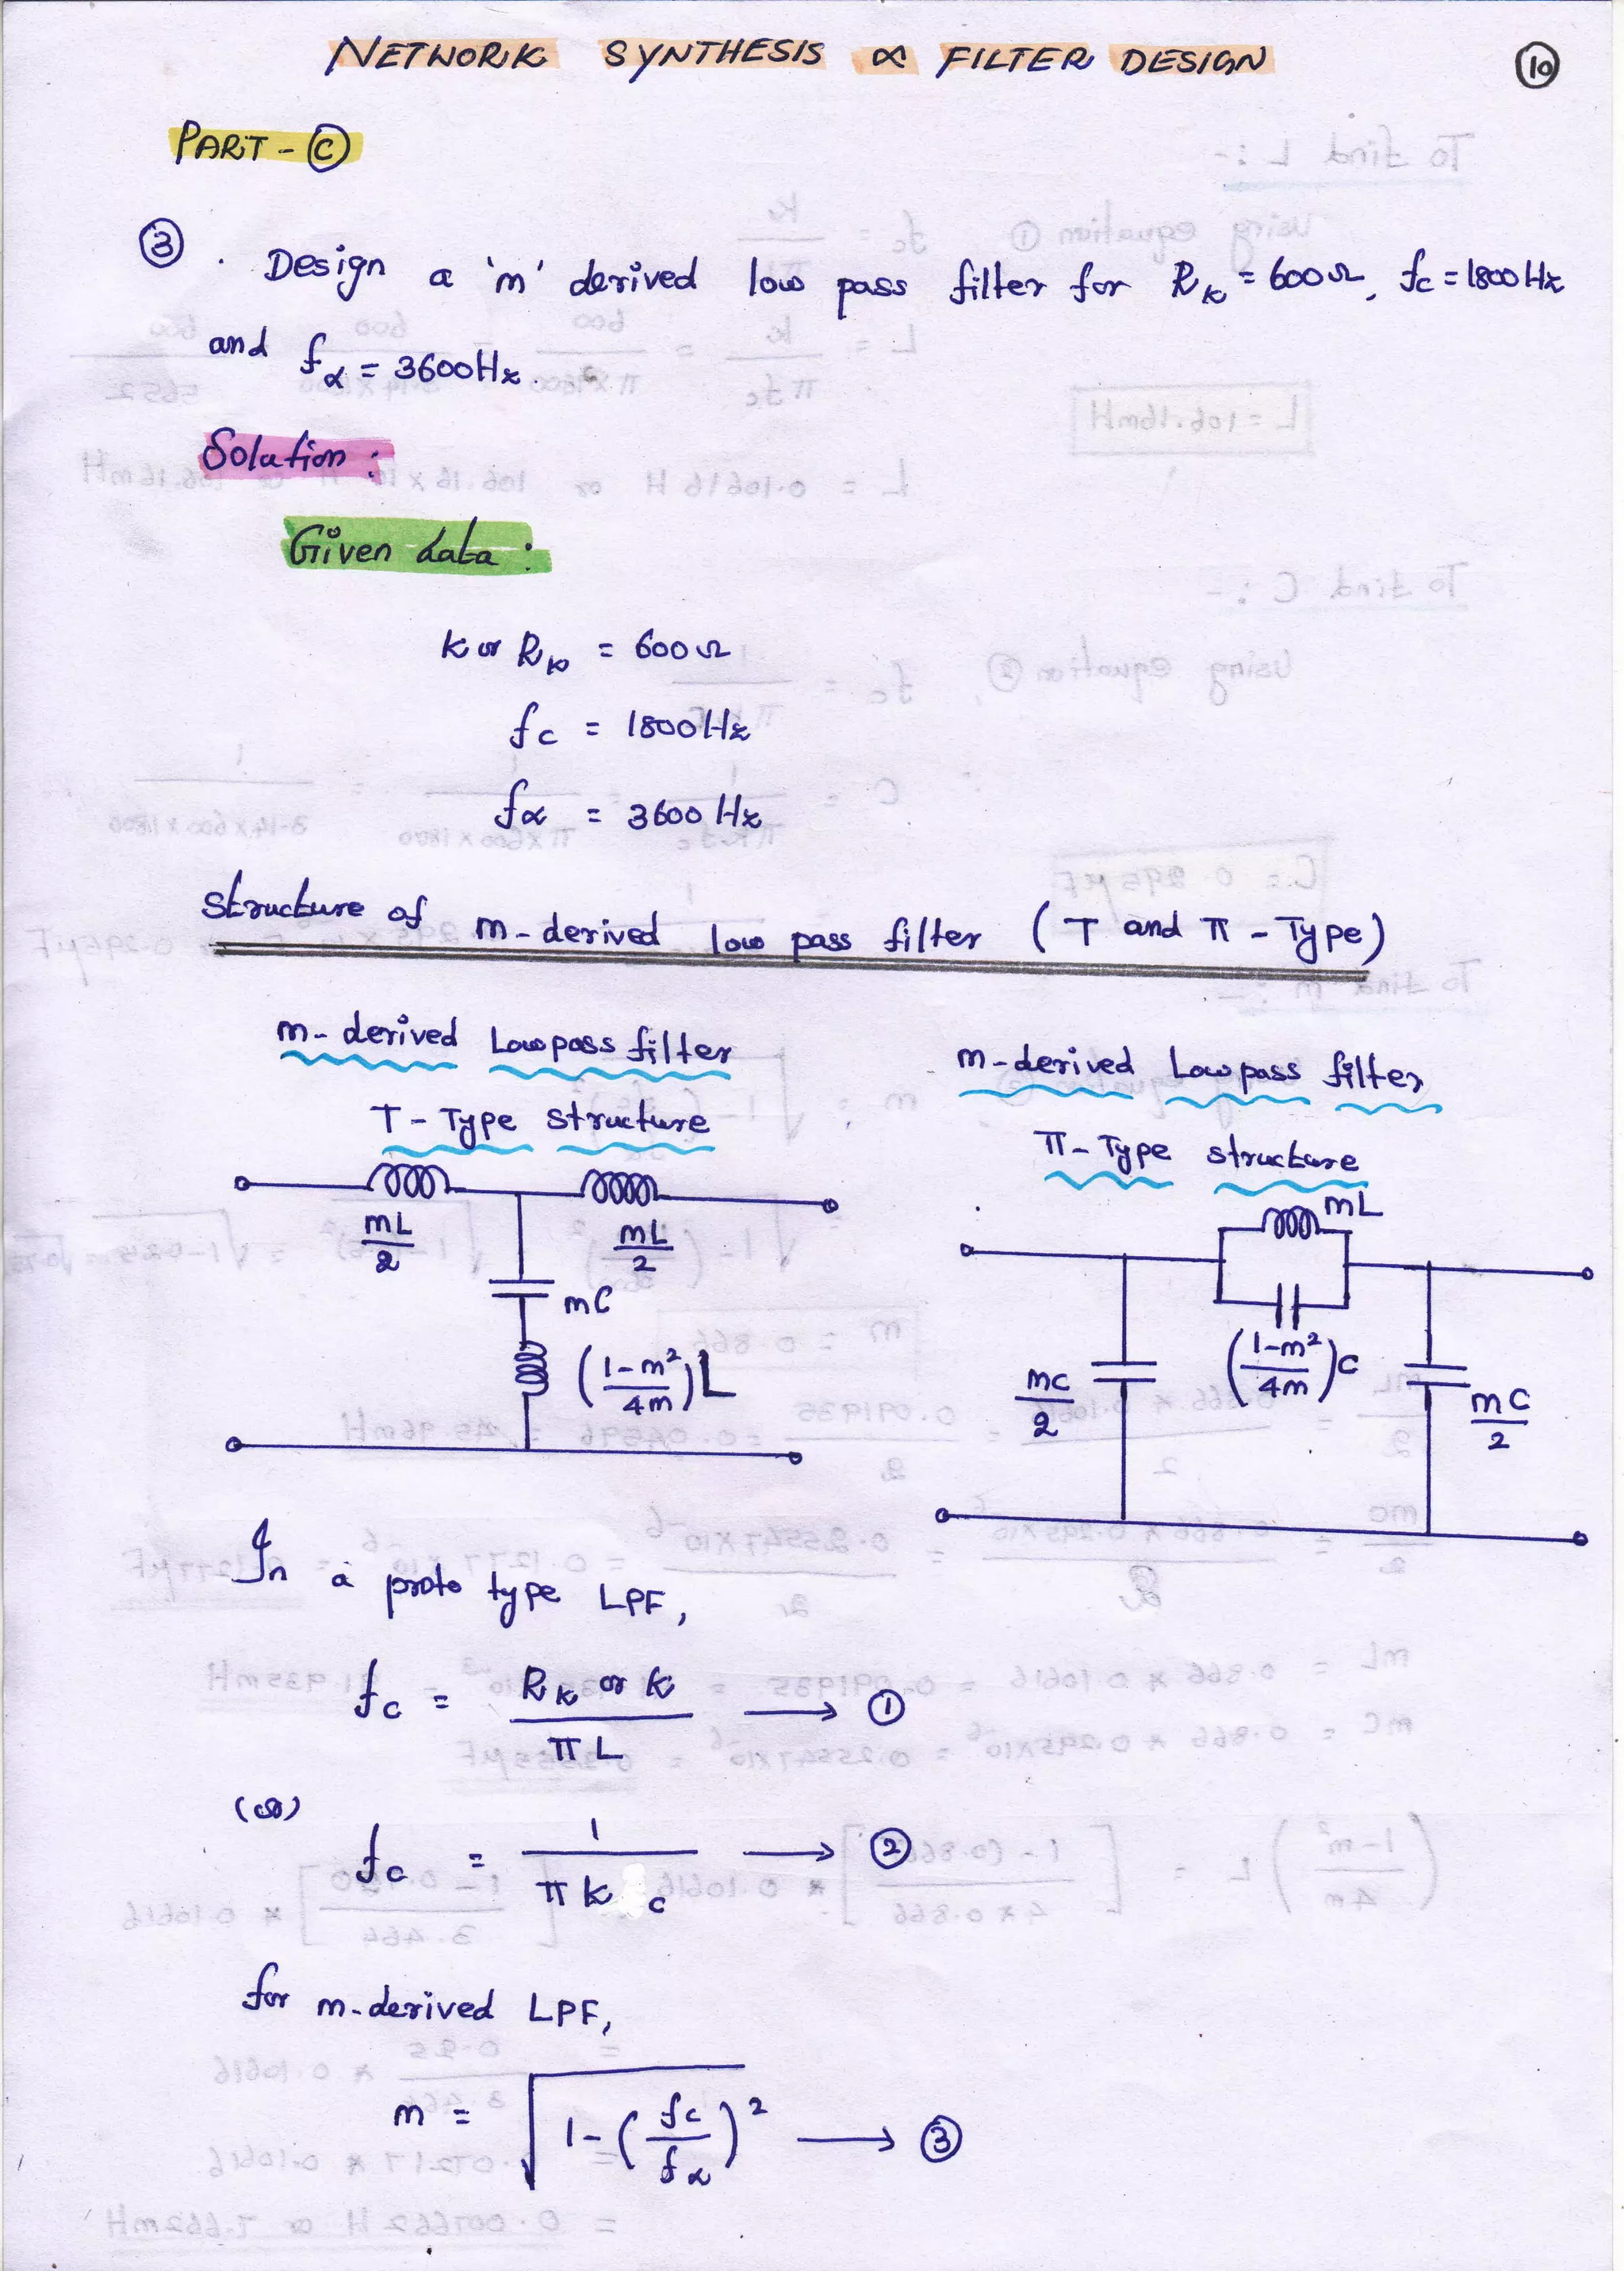 NETWORK SYNTHESIS & FILTER DESIGN
10
PART - C
3 . Design a 'm' derived low pass filter for RK = 600Ω, fc = 1800Hz
and fα = 3600Hz.
Solution :
Given data :
K or RK = 600Ω
fc = 1800Hz
fα = 3600 Hz
Structure of m-derived low pass filter ( T and π - Type )
m-derived Low pass filter
T - Type structure
mL/2
mL/2
mC
(1-m²/4m)L
m-derived Low pass filter
π - Type structure
mL
(1-m²/4m)C
mC/2
mC/2
In a proto type LPF,
fc = RK or K / πL → 1
(or)
fc = 1 / πKC → 2
for m-derived LPF,
m = √1-(fc/fα)² → 3